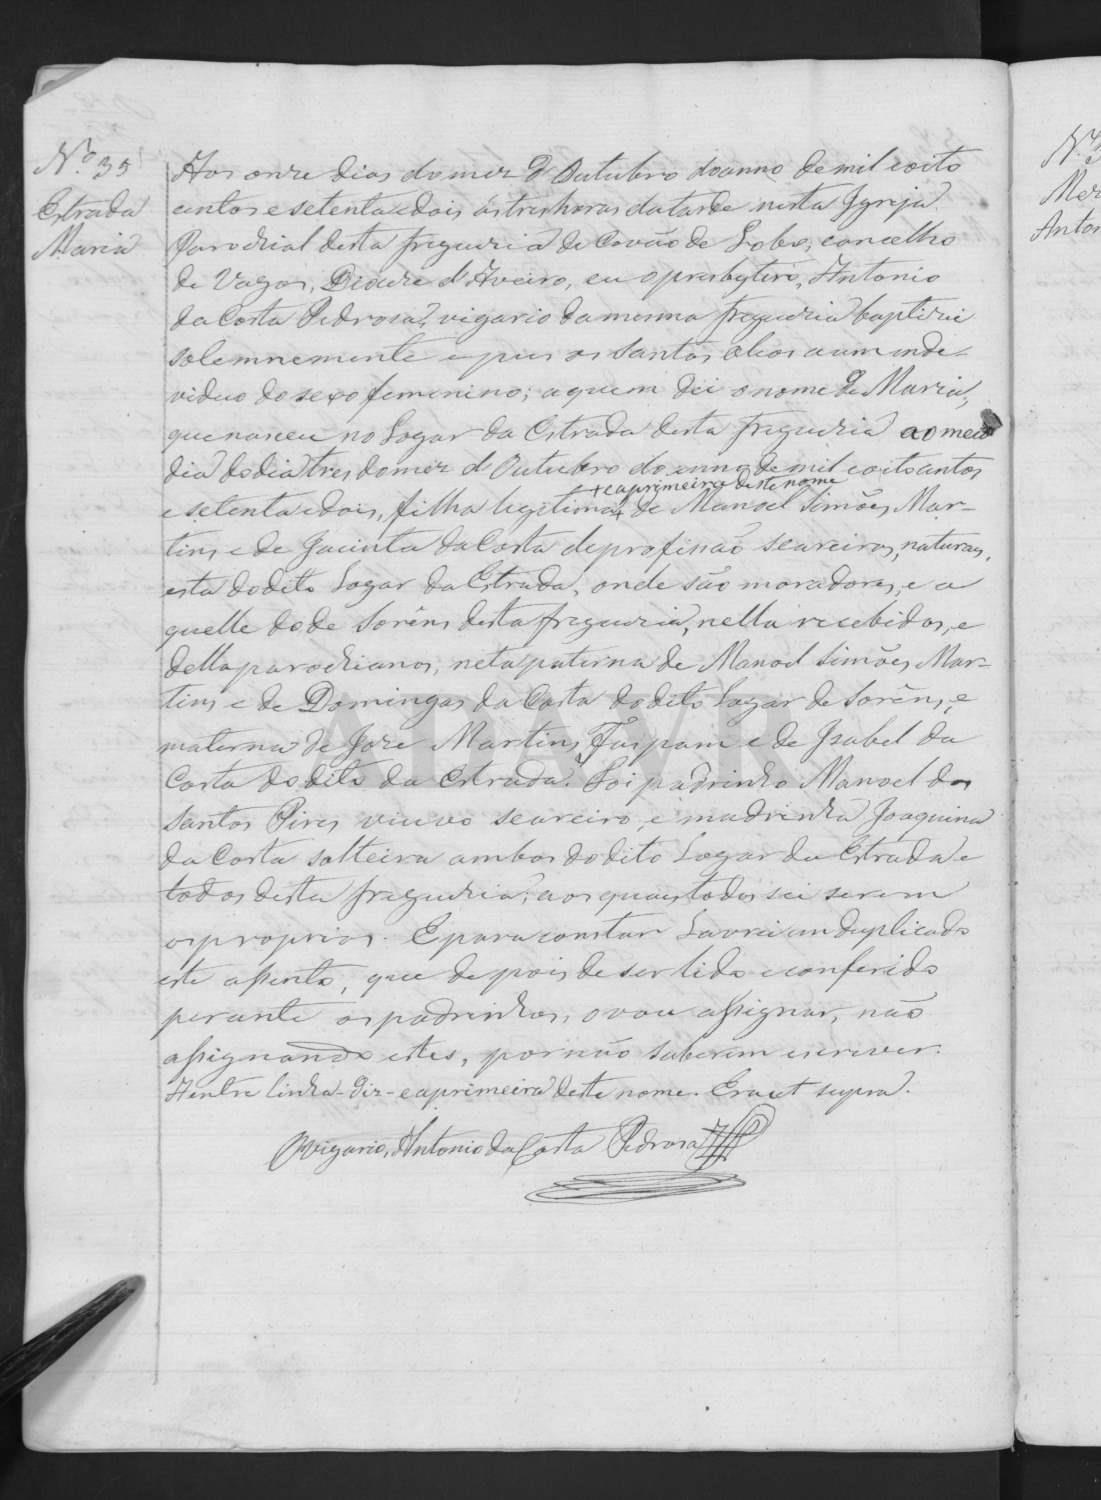 Nº 35
Estrada
Maria
Aos onze dias do mez d'Outubro do anno de mil e oito
centos e setenta e dois ás tres horas da tarde nesta Igreja
Parochial desta freguezia de Covão de Lobo, concelho
de Vagos, Diocese d'Aveiro, eu o presbytero, Antonio
da Costa Pedrosa, vigario da mesma freguezia baptizei
solemnemente e puz os Santos Oleos a um inde-
viduo do sexo femenino; a quem dei o nome de Maria,
que nasceu no Logar da Estrada desta freguezia ao meio
dia do dia tres do mez d'Outubro do anno de mil e oitocentos
+ e aprimeira deste nome
e setenta e dois, filha legitima + de Manoel Simões Mar-
tins e de Jacinta da Costa de profissão seareiros, naturaes,
esta do dito Logar da Estrada, onde são moradores, e a
quelle do de Sorêns desta freguezia, nella recebidos, e
della parochianos, neta paterna de Manoel Simões Mar-
tins e de Domingas da Costa do dito Logar de Sorêns, e
materna de Joze Martins e de Izabel da
Costa do dito da Estrada. Foi padrinho Manoel dos
Santos Pires viuvo seareiro, e madrinha Joaquina
da Costa solteira ambos do dito Logar da Estrada e
todos desta freguezia; aos quaes todos sei serem
os proprios. E para constar Lavrei em duplicado
este assento, que depois de ser lido e conferido
perante os padrinhos, o vou assignar, não
assignando estes, por não saberem escrever.
A entre linha - diz - e aprimeira deste nome. Era ut supra.
O vigario, Antonio da Costa Pedrosa
ADAVR
Nº
Mer
Anto